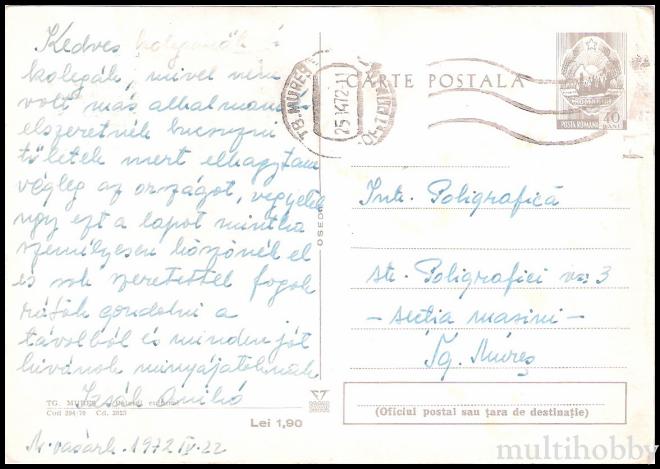 Kedves
kolegák, mivel nem
volt más alkalmam
elszeretnék bucsuzni
tőletek mert elhagytam
végleg az országot, vegyétek
ugy ezt a lapot mintha
személyesen köszönél el
és sok szeretettel fogok
rátok gondolni a
távolból és minden jót
kívánok mindjájatoknak
Izsák Anikó
TG. MUREȘ
Cod 394/70 Cd. 2023
Lei 1,90
M. vásárh. 1972 IV. 22
CARTE POSTALA
TG. MUREȘ
POSTA ROMANA 40 BANI
Intr. Poligrafică
str. Poligrafiei nr. 3
- secția masini -
Tg. Mureș
(Oficiul postal sau țara de destinație)
multihobby